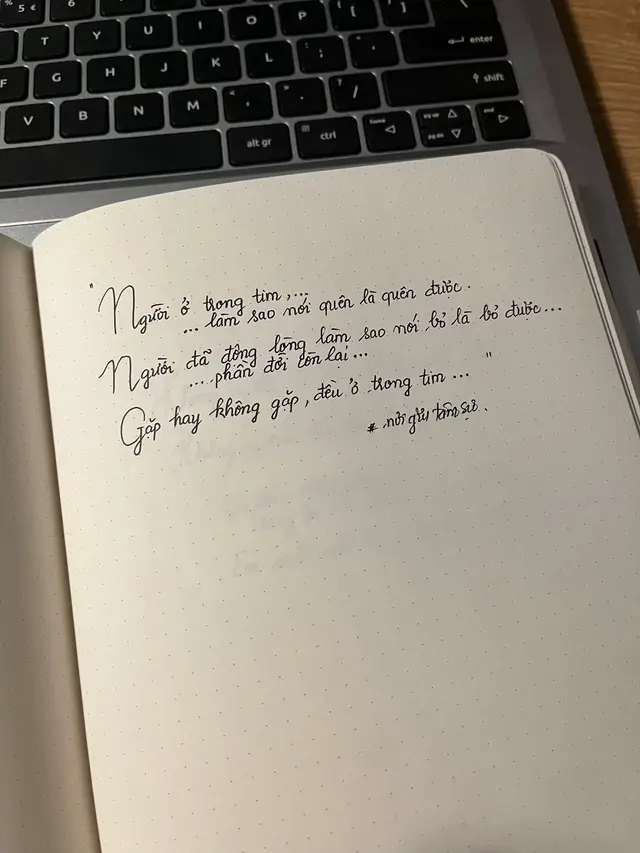 % 5 € 6
T Y U I O P { [ } ]
F G H J K L : ; " ' enter
V B N M < , > . ? / shift
alt gr ctrl home end
" Người ở trong tim,...
... làm sao nói quên là quên được.
Người đã động lòng làm sao nói bỏ là bỏ được...
... phần đời còn lại...
Gặp hay không gặp, đều ở trong tim... "
* nơi gửi tâm sự.